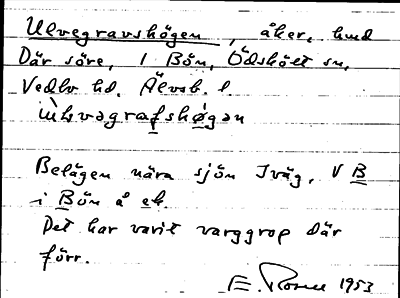 Ulvegravshögen, åker, hmd
Där söre, 1 Bön, Ödskölt sn,
Vedbo hd. Älvsb. l.
ùlvagrafshø̀gan
Belägen nära sjön Iväg, V B
i Bön å ek.
Det har varit varggrop där
förr.
E. Rosell 1953